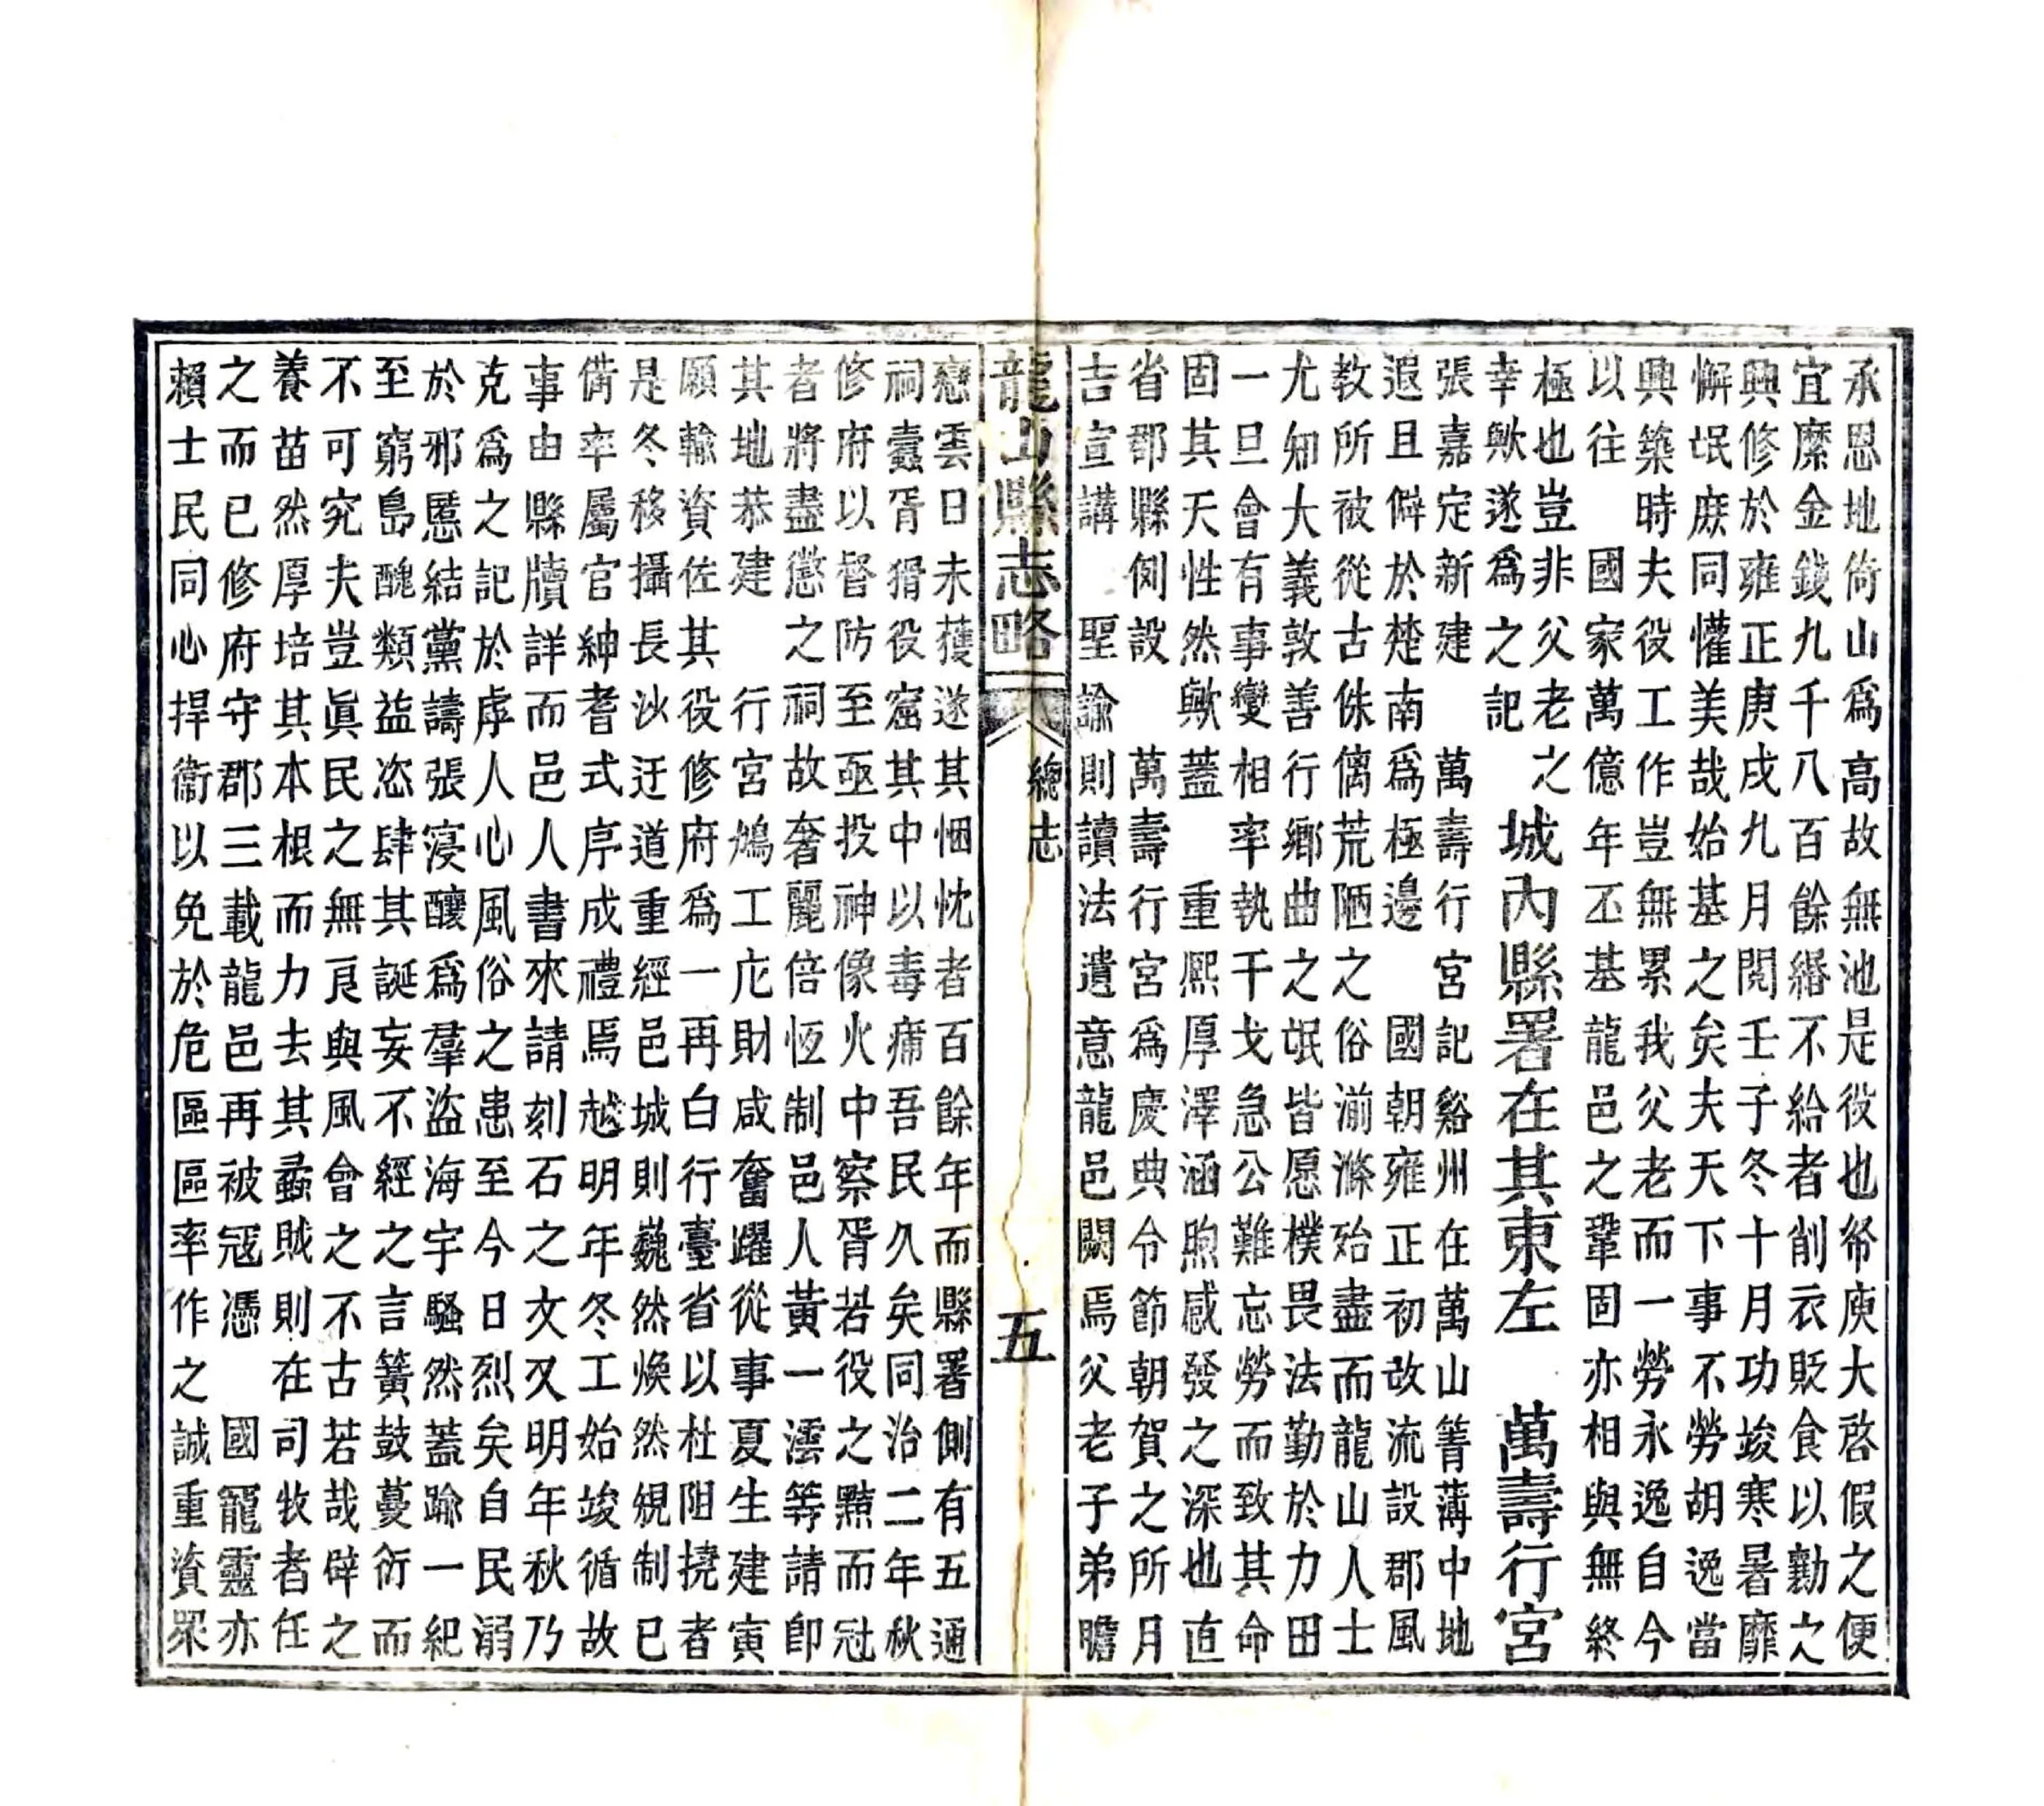 承恩地倚山爲高故無池是役也帑庾大啓假之便
宜縻金錢九千八百餘緡不給者削衣貶食以勷之
興修於雍正庚戌九月閱壬子冬十月功竣寒暑靡
懈氓庶同懽美哉始基之矣夫天下事不勞胡逸當
興築時夫役工作豈無累我父老而一勞永逸自今
以往　國家萬億年丕基龍邑之鞏固亦相與無終
極也豈非父老之
幸歟遂爲之記
城內縣署在其東左　萬壽行宮
張嘉定新建　萬壽行宮記谿州在萬山箐薄中地
遐且僻於楚南爲極邊　國朝雍正初故流設郡風
教所被從古侏𠌯荒陋之俗湔滌殆盡而龍山人士
尤知大義敦善行鄉曲之氓皆愿樸畏法勤於力田
一旦會有事變相率執干戈急公難忘勞而致其命
固其天性然歟蓋　重熙厚澤涵煦感發之深也直
省郡縣例設　萬壽行宮爲慶典令節朝賀之所月
吉宣講　聖諭則讀法遺意龍邑闕焉父老子弟瞻
龍山縣志略　八　總志　五
戀雲日未獲遂其悃忱者百餘年而縣署側有五通
祠蠹胥猾役窟其中以毒痡吾民久矣同治二年秋
修府以督防至亟投神像火中察胥若役之黠而冠
者將盡懲之祠故奢麗倍恆制邑人黃一澐等請卽
其地恭建　行宮鳩工庀財咸奮躍從事夏生建寅
願輸資佐其役修府爲一再白行臺省以杜阻撓者
是冬移攝長沙迂道重經邑城則巍然煥然規制已
備率屬官紳耆式序成禮焉越明年冬工始竣循故
事由縣牘詳而邑人書來請刻石之文又明年秋乃
克爲之記於虖人心風俗之患至今日烈矣自民溺
於邪慝結黨譸張寖釀爲羣盜海宇騷然蓋踰一紀
至窮島醜類益恣肆其誕妄不經之言簧鼓蔓衍而
不可究夫豈眞民之無良與風會之不古若哉辟之
養苗然厚培其本根而力去其蟊賊則在司牧者任
之而已修府守郡三載龍邑再被寇憑　國寵靈亦
賴士民同心捍衞以免於危區區率作之誠重資眾